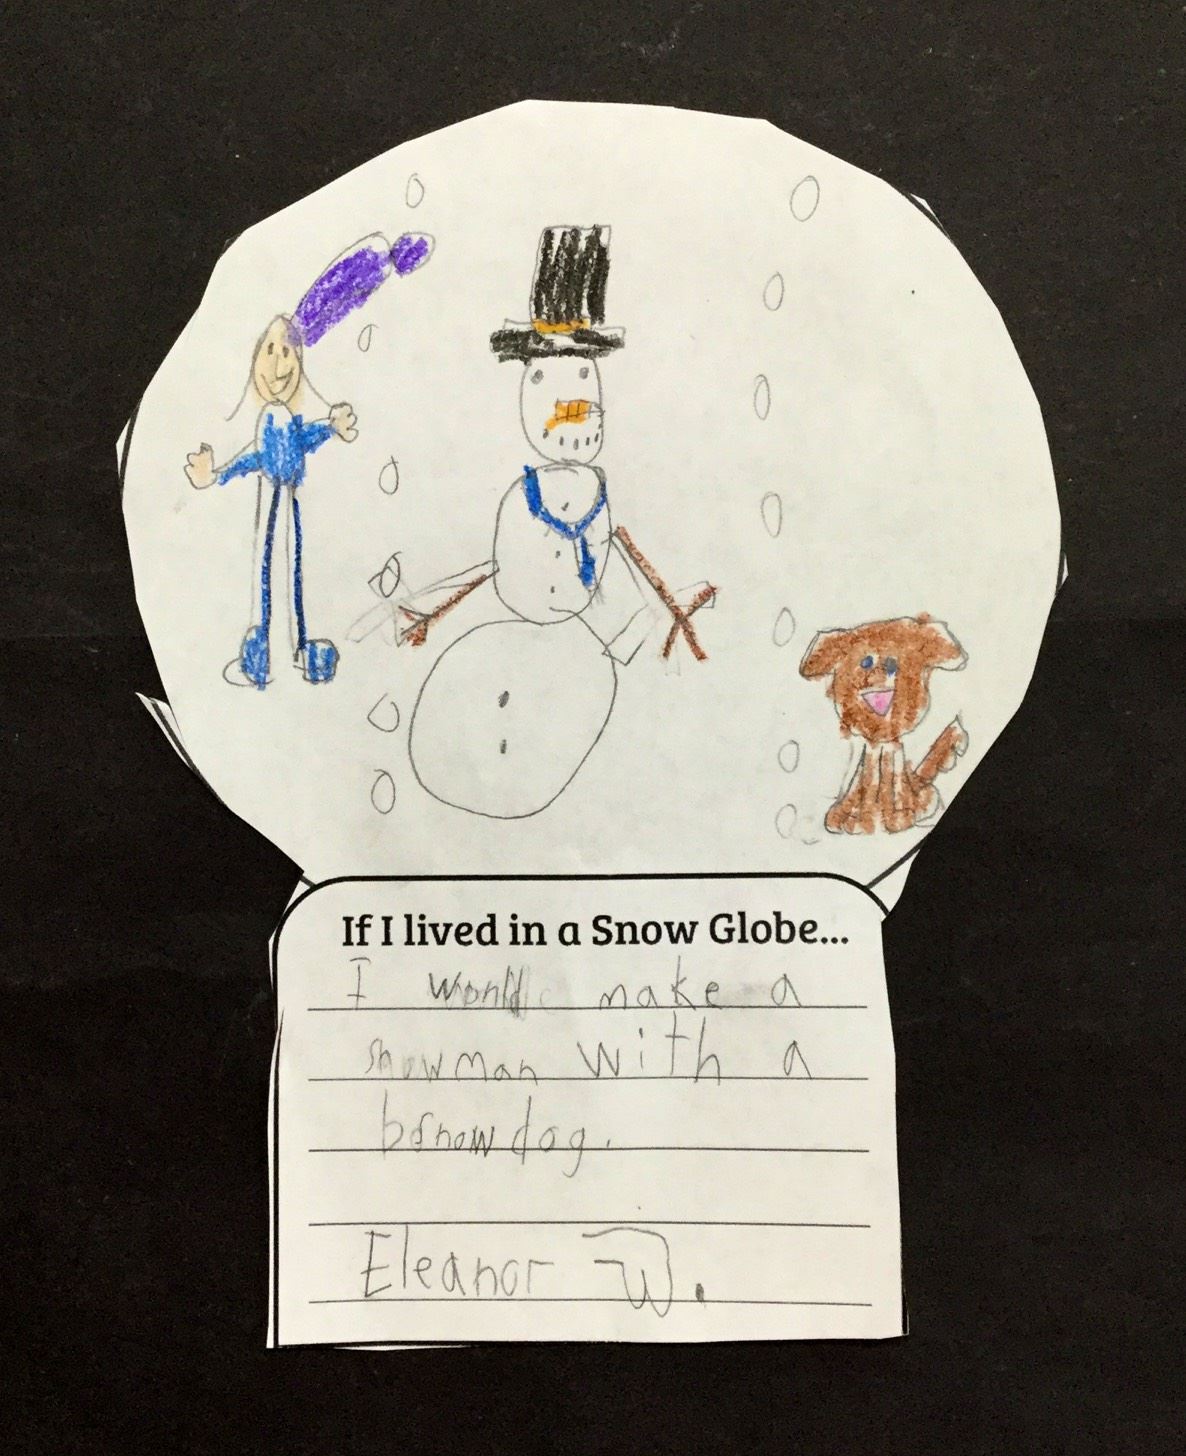 If I lived in a Snow Globe...
I would make a
snowman with a
bsnowdog.
Eleanor W.